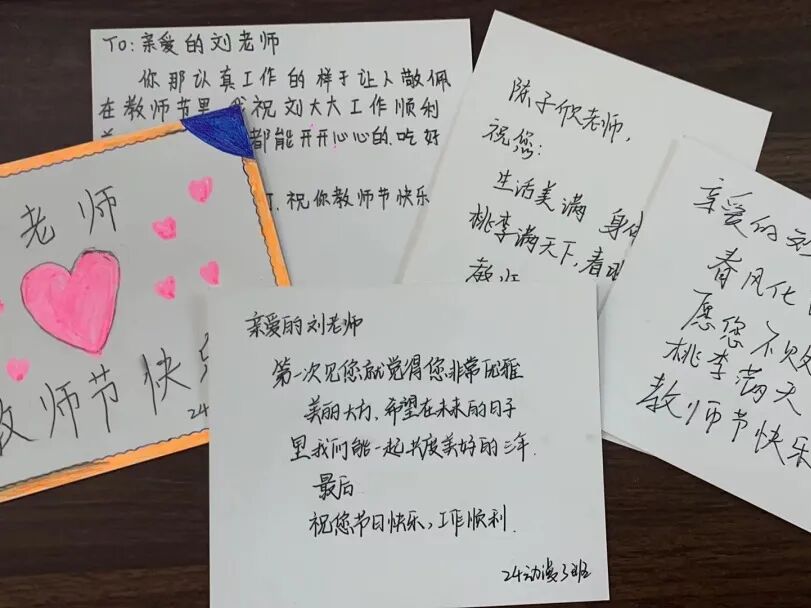 TO: 亲爱的刘老师
你那认真工作的样子让人敬佩
在教师节里 我祝刘大大工作顺利
都能开开心心的.吃好
祝你教师节快乐
陈子欣老师,
祝您:
生活美满 身体
桃李满天下,春
教师
亲爱的刘
春风化
愿您不败
桃李满天
教师节快乐
老师
教师节快乐
24
亲爱的刘老师
第一次见您就觉得您非常优雅
美丽大方,希望在未来的日子
里我们能一起共度美好的三年.
最后
祝您节日快乐,工作顺利.
24动漫3班